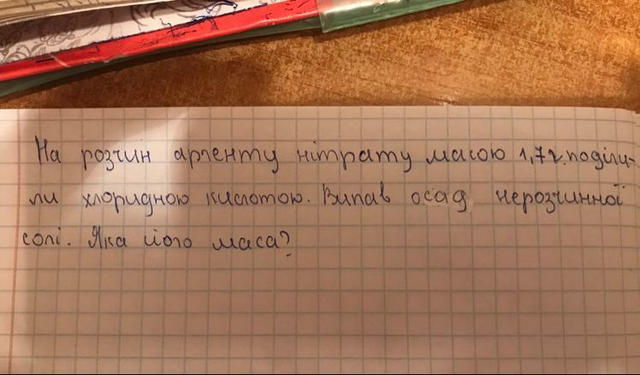 На розчин аргенту нітрату масою 1,7 г. поділи-
ли хлоридною кислотою. Випав осад нерозчинної
солі. Яка його маса?